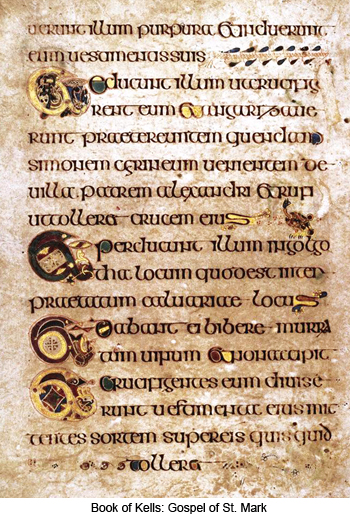 uerunt illum purpura et induerunt
eum uestimentis suis
Et educunt illum ut crucifige
rent eum et angarizaue
runt praetereuntem quendam
simonem cyrineum uenientem de
uilla patrem alexandri et rufi
ut tolleret crucem eius
Et perducunt illum in golgo
tha locum quod est inter
praetatum caluariae locus
Et dabant ei bibere murra
tum uinum et non accipit
Et crucifigentes eum diuise
runt uestimenta eius mit
tentes sortem super eis quis quid
tolleret
Book of Kells: Gospel of St. Mark